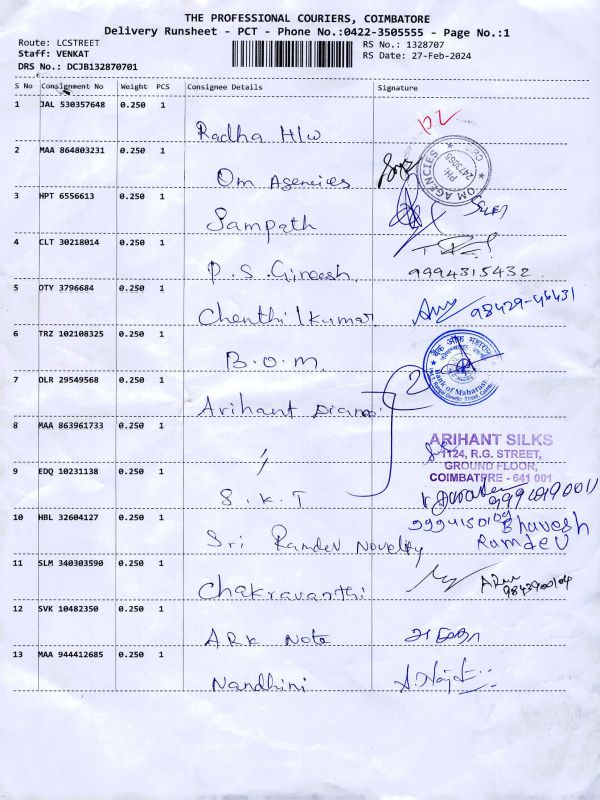 THE PROFESSIONAL COURIERS, COIMBATORE
Delivery Runsheet - PCT - Phone No.:0422-3505555 - Page No.:1
Route: LCSTREET
Staff: VENKAT
DRS No.: DCJB132870701
RS No.: 1328707
RS Date: 27-Feb-2024
S No Consignment No Weight PCS Consignee Details Signature
1 JAL 530357648 0.250 1
Radha H/w
2 MAA 864803231 0.250 1
Om Agencies
OM AGENCIES
PH: 2473055
3 HPT 6556613 0.250 1
Sampath
4 CLT 30218014 0.250 1
P.S. Gireesh 9994315432
5 DTY 3796684 0.250 1
Chenthilkumar 98429-46431
6 TRZ 102108325 0.250 1
B.O.M.
बैंक ऑफ महाराष्ट्र
Bank of Maharas
7 DLR 29549568 0.250 1
Arihant 2
8 MAA 863961733 0.250 1
〃
ARIHANT SILKS
1124, R.G. STREET,
GROUND FLOOR,
COIMBATPRE - 641 001
9 EDQ 10231138 0.250 1
S.K.T
10 HBL 32604127 0.250 1
Sri Ramdev Novelty
Bhavesh
Ramdev
11 SLM 340303590 0.250 1
Chakravarthi
12 SVK 10482350 0.250 1
ARK Note
13 MAA 944412685 0.250 1
Nandhini